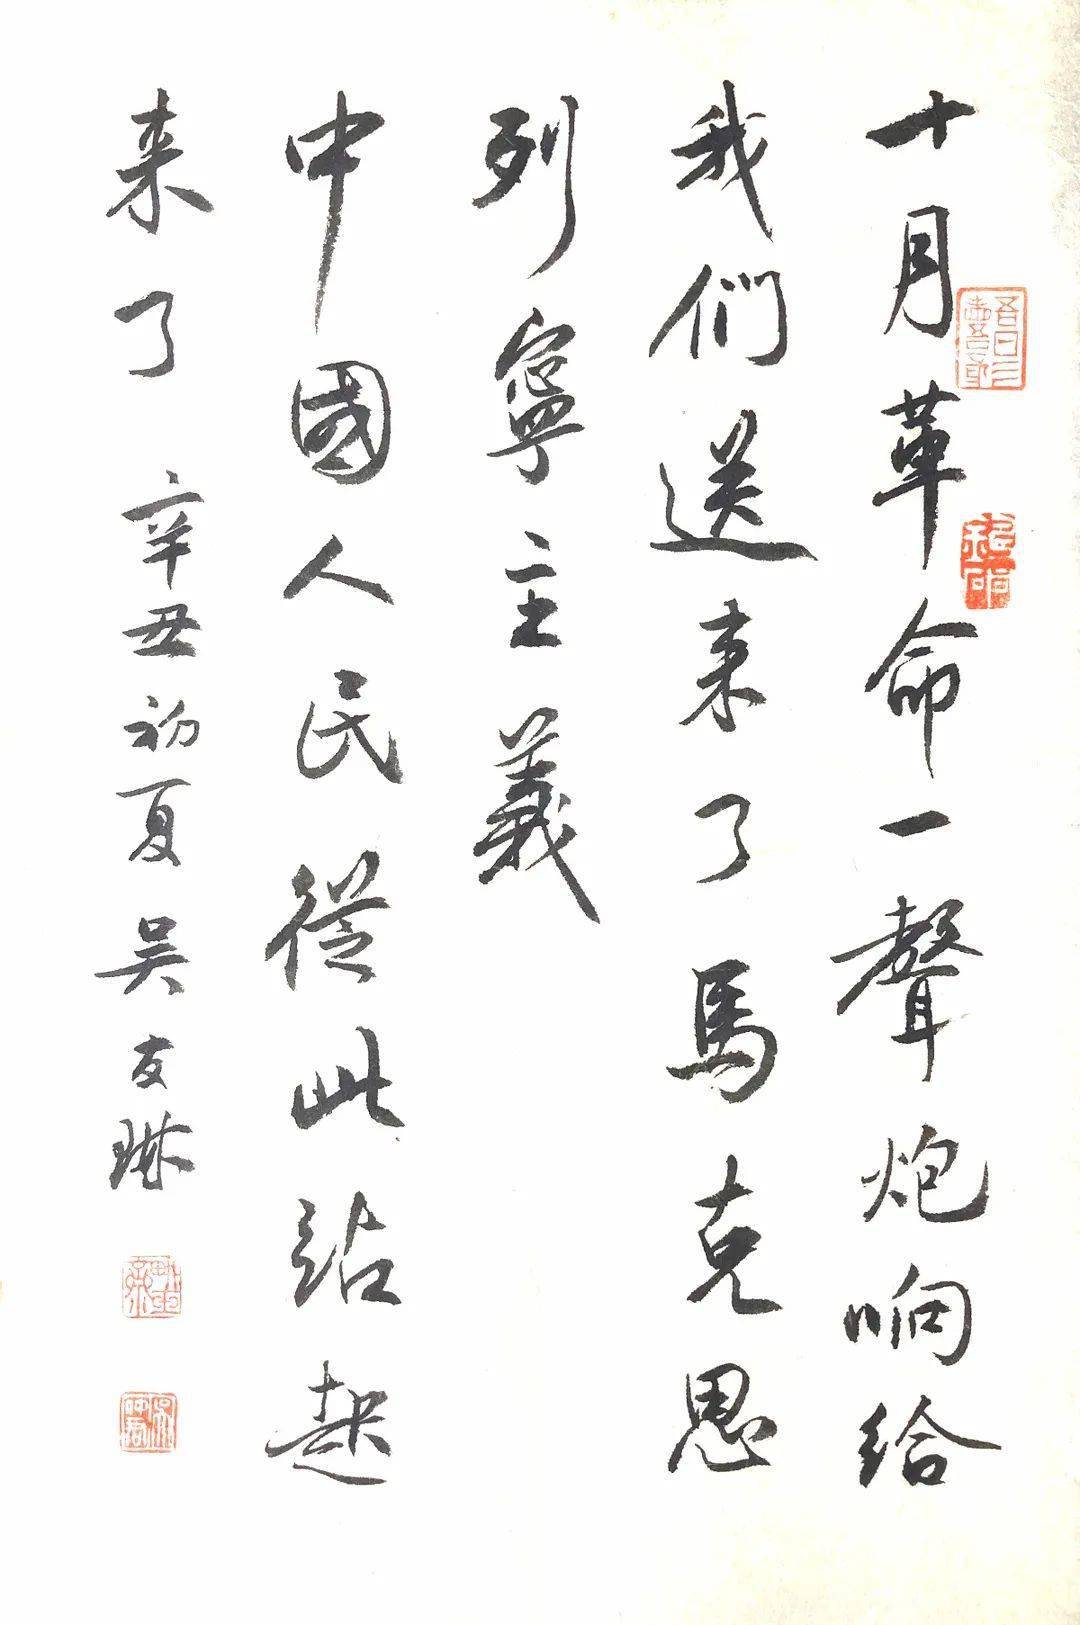 十月革命一聲炮响给
我们送来了馬克思
列寧主義
中國人民從此站起
来了 辛丑初夏 吴友琳